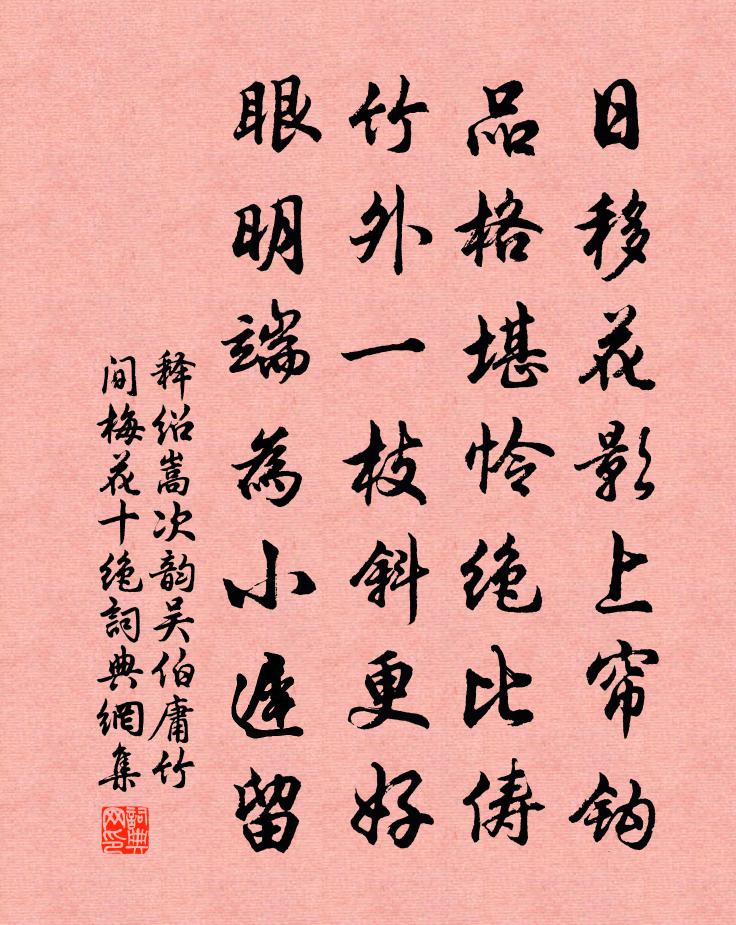 日移花影上帘钩
品格堪怜绝比俦
竹外一枝斜更好
眼明端為小遲留
释绍嵩次韵吴伯庸竹
间梅花十绝詞典網集
詞典
网印